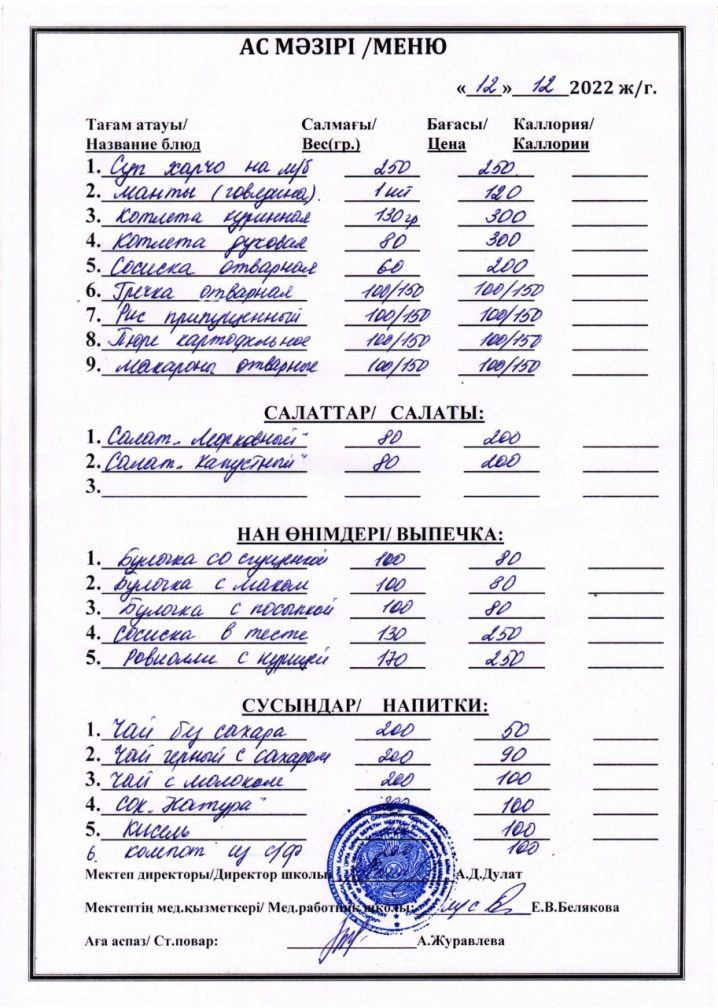 АС МӘЗІРІ /МЕНЮ
«12» 12 2022 ж/г.
Тағам атауы/ Салмағы/ Бағасы/ Каллория/
Название блюд Вес(гр.) Цена Каллории
1. Суп харчо на м/б 250 250
2. Манты (говядина) 1 шт 120
3. Котлета куринная 130гр 300
4. Котлета духовая 80 300
5. Сосиска отварная 60 200
6. Гречка отварная 100/150 100/150
7. Рис припущенный 100/150 100/150
8. Пюре картофельное 100/150 100/150
9. Макароны отварные 100/150 100/150
САЛАТТАР/ САЛАТЫ:
1. Салат „Морковный" 80 200
2. Салат „Капустный" 80 200
3.
НАН ӨНІМДЕРІ/ ВЫПЕЧКА:
1. Булочка со сгущенкой 100 80
2. Булочка с маком 100 80
3. Булочка с посыпкой 100 80
4. Сосиска в тесте 130 250
5. Ровиолли с курицей 170 250
СУСЫНДАР/ НАПИТКИ:
1. Чай без сахара 200 50
2. Чай черный с сахаром 200 90
3. Чай с молоком 200 100
4. Сок „Натура" 100
5. Кисель 100
6. компот из с/ф 100
Мектеп директоры/Директор школы: А.Д.Дулат
Мектептің мед.қызметкері/ Мед.работник школы: Е.В.Белякова
Аға аспаз/ Ст.повар: А.Журавлева